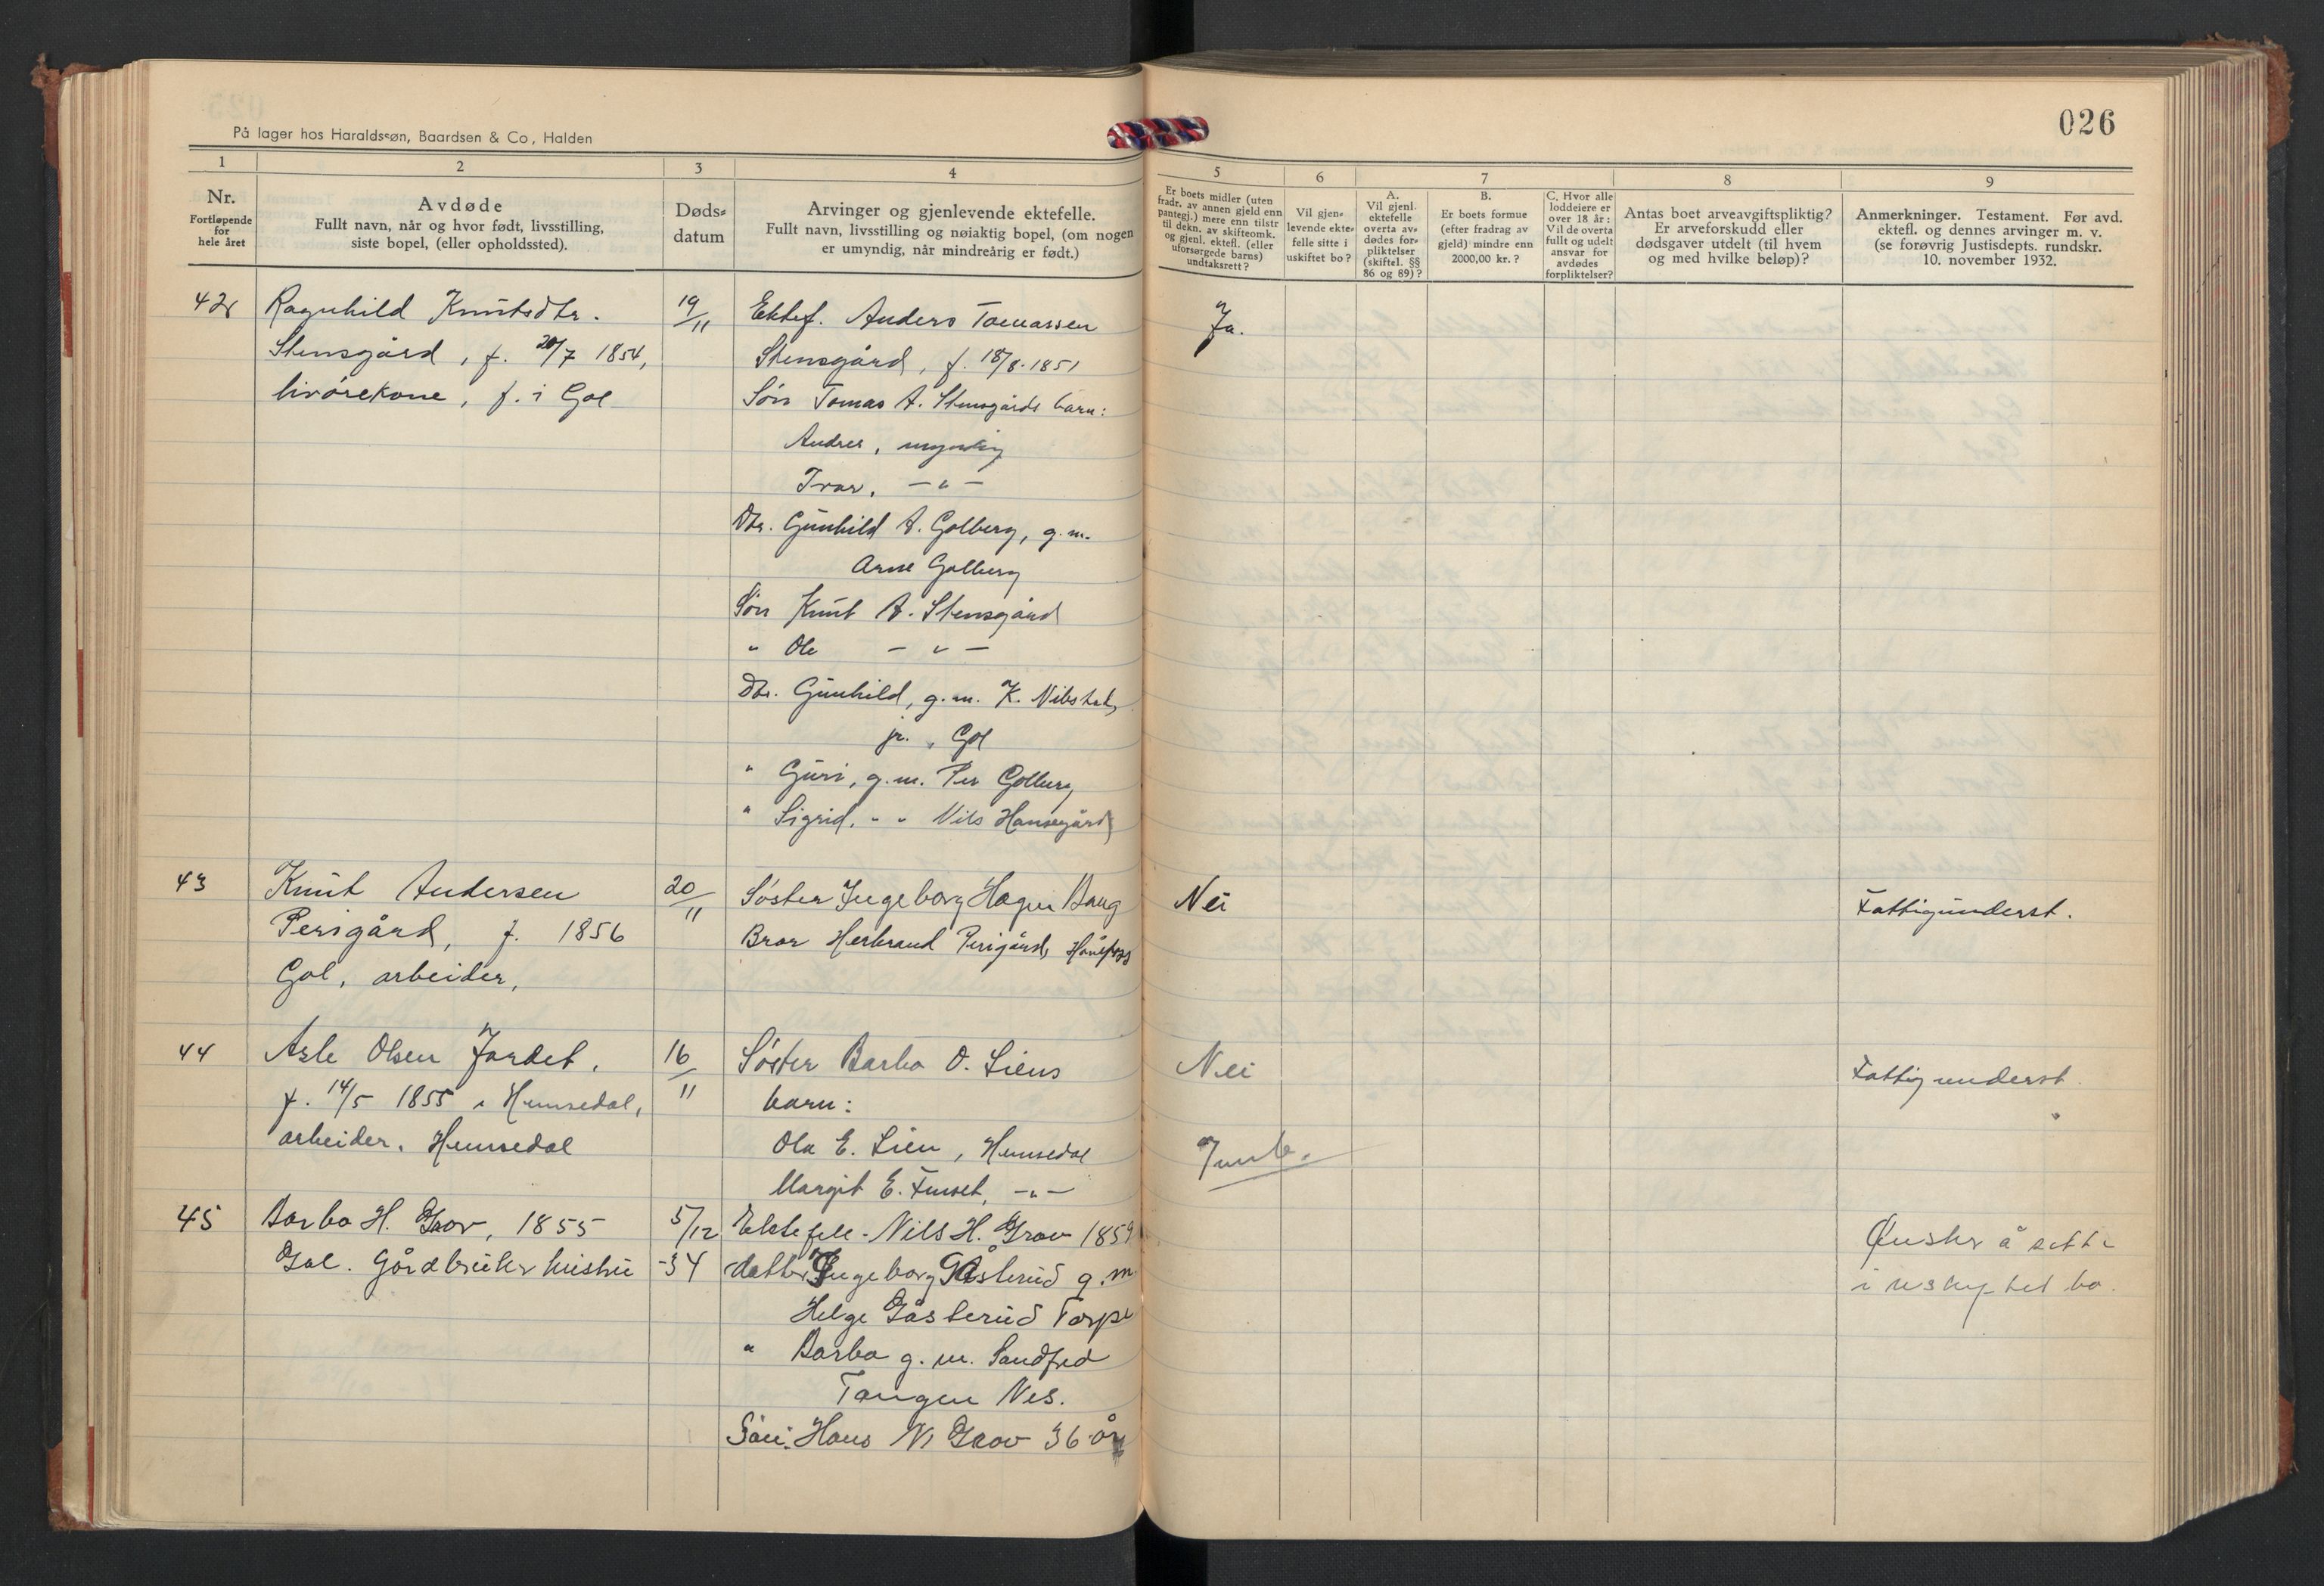 026
På lager hos Haraldssøn, Baardsen & Co, Halden
1 2 3 4 5 6 7 8 9
Nr.
Fortløpende
for
hele året
Avdøde
Fullt navn, når og hvor født, livsstilling,
siste bopel, (eller opholdssted).
Døds-
datum
Arvinger og gjenlevende ektefelle.
Fullt navn, livsstilling og nøiaktig bopel, (om nogen
er umyndig, når mindreårig er født.)
Er boets midler (uten
fradr. av annen gjeld enn
pantegj.) mere enn tilstr
til dekn. av skifteomk.
og gjenl. ektefl. (eller
uforsørgede barns)
undtaksrett?
Vil gjen-
levende ekte-
felle sitte i
uskiftet bo?
A.
Vil gjenl.
ektefelle
overta av-
dødes for-
pliktelser
(skiftel. §§
86 og 89)?
B.
Er boets formue
(efter fradrag av
gjeld) mindre enn
2000,00 kr.?
C. Hvor alle
loddeiere er
over 18 år:
Vil de overta
fullt og udelt
ansvar for
avdødes
forpliktelser?
Antas boet arveavgiftspliktig?
Er arveforskudd eller
dødsgaver utdelt (til hvem
og med hvilke beløp)?
Anmerkninger. Testament. Før avd.
ektefl. og dennes arvinger m. v.
(se forøvrig Justisdepts. rundskr.
10. november 1932.
42 Ragnhild Knutsdtr. 19/11 Ektef. Anders Tomassen Ja.
Stensgård, f. 20/7 1854, Stensgård, f. 18/8.1851
livørekone, f. i Gol Søn Tomas A. Stensgårds barn:
Andres, umyndig
Ivar, - " -
Dtr. Gunhild A. Golberg, g.m.
Arne Golberg
Søn Knut A. Stensgård
" Ole - " -
Dtr. Gunhild, g.m. K. Nibstad,
jr., Gol
" Guri, g.m. Per Golberg
" Sigrid, " " Nils Hansegård
43 Knut Andersen 20/11 Søster Ingeborg Hagen Haug Nei Fattigunderst.
Perigård, f. 1856 Bror Herbrand Perigård, Hønefoss
Gol, arbeider,
44 Asle Olsen Jordet, 16/11 Søster Barbo O. Liens Nei Fattigunderst.
f. 14/5 1855 i Hemsedal, barn:
arbeider. Hemsedal Ola E. Lien, Hemsedal
Margit E. Fuset, - " -
45 Barbo H. Grov, 1855 5/12 Ektefelle - Nils H. Grov 1859 Ønsker å sitte
Gol. Gårdbruker hustru -34 datter Ingeborg Gåsterud g.m i uskiftet bo.
Helge Gåsterud Torpe
" Barbo g.m. Sandfred
Tangen Nes.
Søn: Hans N. Grov 36 år